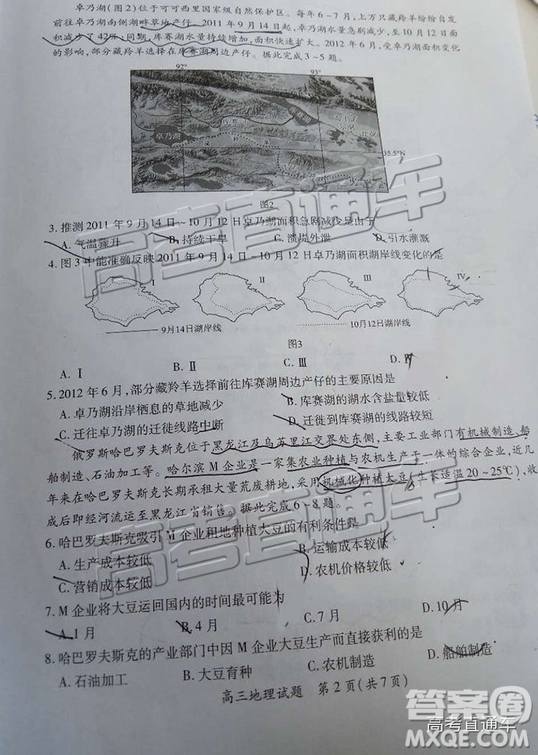 卓乃湖(图2)位于可可西里国家级自然保护区。每年6~7月,上万只藏羚羊纷纷自发
前往卓乃湖南侧湖畔草地产仔。2011年9月14日起,卓乃湖水量急剧减少,至10月12日面
积减少了42%;同期,库赛湖水量持续增加,面积快速扩大。2012年6月,受卓乃湖面积变化
的影响,部分藏羚羊选择在库赛湖周边产仔。据此完成3~5题。
92°
93°
卓乃湖
35.5°N
图2
3.推测2011年9月14日~10月12日卓乃湖面积急剧减少是由于
A.气温骤升
B.持续干旱
C.溃堤外泄
D.引水灌溉
4.图3中能准确反映2011年9月14日~10月12日卓乃湖面积湖岸线变化的是
Ⅰ
Ⅱ
Ⅲ
Ⅳ
9月14日湖岸线
10月12日湖岸线
图3
A.Ⅰ
B.Ⅱ
C.Ⅲ
D.Ⅳ
5.2012年6月,部分藏羚羊选择前往库赛湖周边产仔的主要原因是
A.卓乃湖沿岸栖息的草地减少
B.库赛湖的湖水含盐量较低
C.迁往卓乃湖的迁徙线路中断
D.迁徙到库赛湖的线路较短
俄罗斯哈巴罗夫斯克位于黑龙江及乌苏里江交界处东侧,主要工业部门有机械制造、船
舶制造、石油加工等。哈尔滨M企业是一家集农业种植与农机生产于一体的综合企业,近
年来在哈巴罗夫斯克长期承租大量荒废耕地,采用机械化种植大豆(生长适温20~25℃),收
成后即经河流运至黑龙江省销售。据此完成6~8题。
6.哈巴罗夫斯克吸引M企业租地种植大豆的有利条件是
A.生产成本较低
B.运输成本较低
C.营销成本较低
D.农机价格较低
7.M企业将大豆运回国内的时间最可能为
A.1月
B.4月
C.7月
D.10月
8.哈巴罗夫斯克的产业部门中因M企业大豆生产而直接获利的是
A.石油加工
B.大豆育种
C.农机制造
D.船舶制造
高三地理试题 第2页(共7页)
高考直通车
高考直通车
高考直通车
答案圈
MXQE.COM